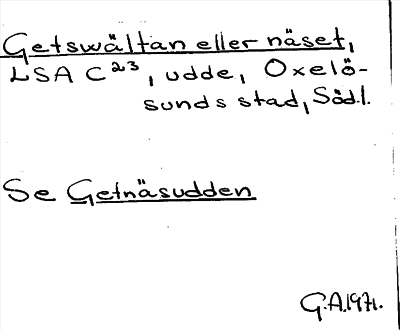 Getswältan eller näset,
LSA C²³, udde, Oxelö-
sunds stad, Söd.l.
Se Getnäsudden
G.A.1971.